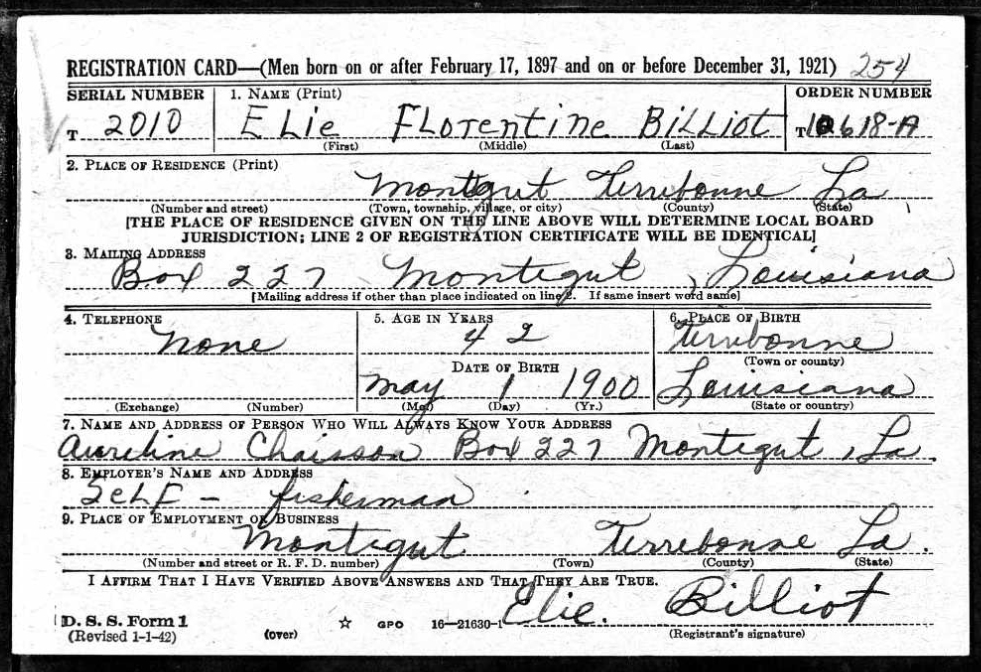 REGISTRATION CARD—(Men born on or after February 17, 1897 and on or before December 31, 1921) 254
SERIAL NUMBER 1. NAME (Print) ORDER NUMBER
T 2010 ELie FLorentine BiLLioT T 10618-A
(First) (Middle) (Last)
2. PLACE OF RESIDENCE (Print)
Montegut Terrebonne La
(Number and street) (Town, township, village, or city) (County) (State)
[THE PLACE OF RESIDENCE GIVEN ON THE LINE ABOVE WILL DETERMINE LOCAL BOARD
JURISDICTION; LINE 2 OF REGISTRATION CERTIFICATE WILL BE IDENTICAL]
3. MAILING ADDRESS
Box 227 Montegut, Louisiana
[Mailing address if other than place indicated on line 2. If same insert word same]
4. TELEPHONE 5. AGE IN YEARS 6. PLACE OF BIRTH
none 42 Terrebonne
DATE OF BIRTH (Town or county)
May 1 1900 Louisiana
(Exchange) (Number) (Mo.) (Day) (Yr.) (State or country)
7. NAME AND ADDRESS OF PERSON WHO WILL ALWAYS KNOW YOUR ADDRESS
Aureline Chaisson Box 227 Montegut, La.
8. EMPLOYER'S NAME AND ADDRESS
SeLF - fisherman
9. PLACE OF EMPLOYMENT OR BUSINESS
Montegut Terrebonne La.
(Number and street or R. F. D. number) (Town) (County) (State)
I AFFIRM THAT I HAVE VERIFIED ABOVE ANSWERS AND THAT THEY ARE TRUE.
Elie. Billiot
D. S. S. Form 1 ☆ GPO 16—21630-1
(Revised 1-1-42) (over) (Registrant's signature)